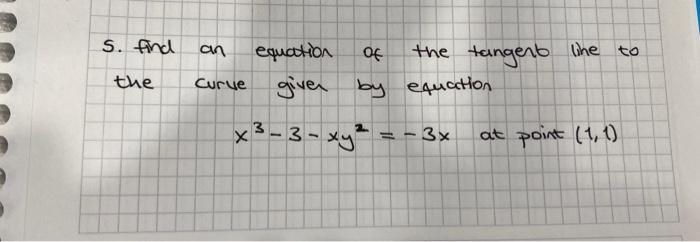 5. find an equation of the tangent line to
the curve given by equation
x³ - 3 - xy² = - 3x at point (1,1)